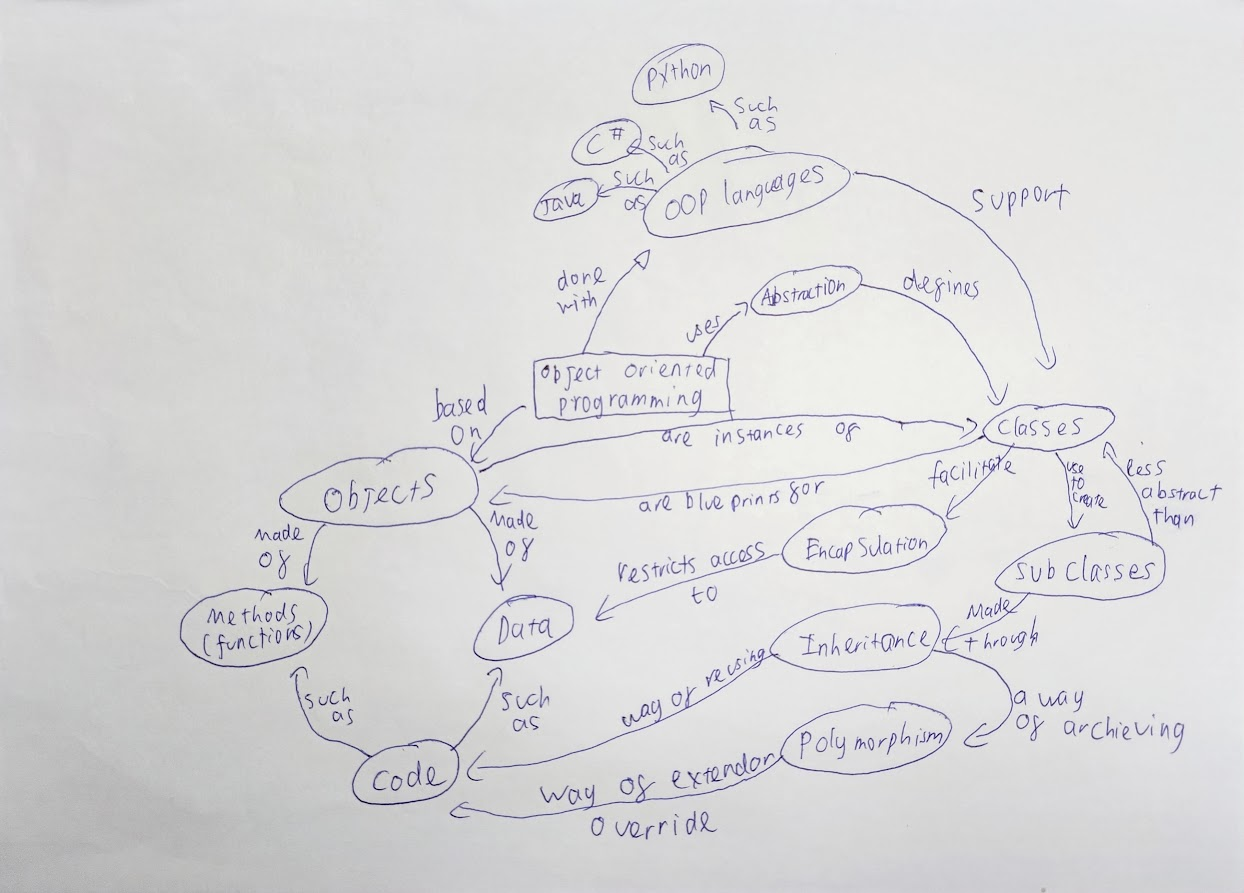 Python
such
as
C#
such
as
Java
such
as
OOP languages
support
done
with
uses
Abstraction
degines
Object oriented
programming
based
on
are instances of
classes
Objects
are blue prints for
facilitate
use
to
create
less
abstract
than
Made
of
Made
of
restricts access
to
Encapsulation
sub classes
Methods
(functions)
Data
Made
through
Inheritance
such
as
such
as
way of reusing
a way
of archieving
Polymorphism
code
way of extendor
override